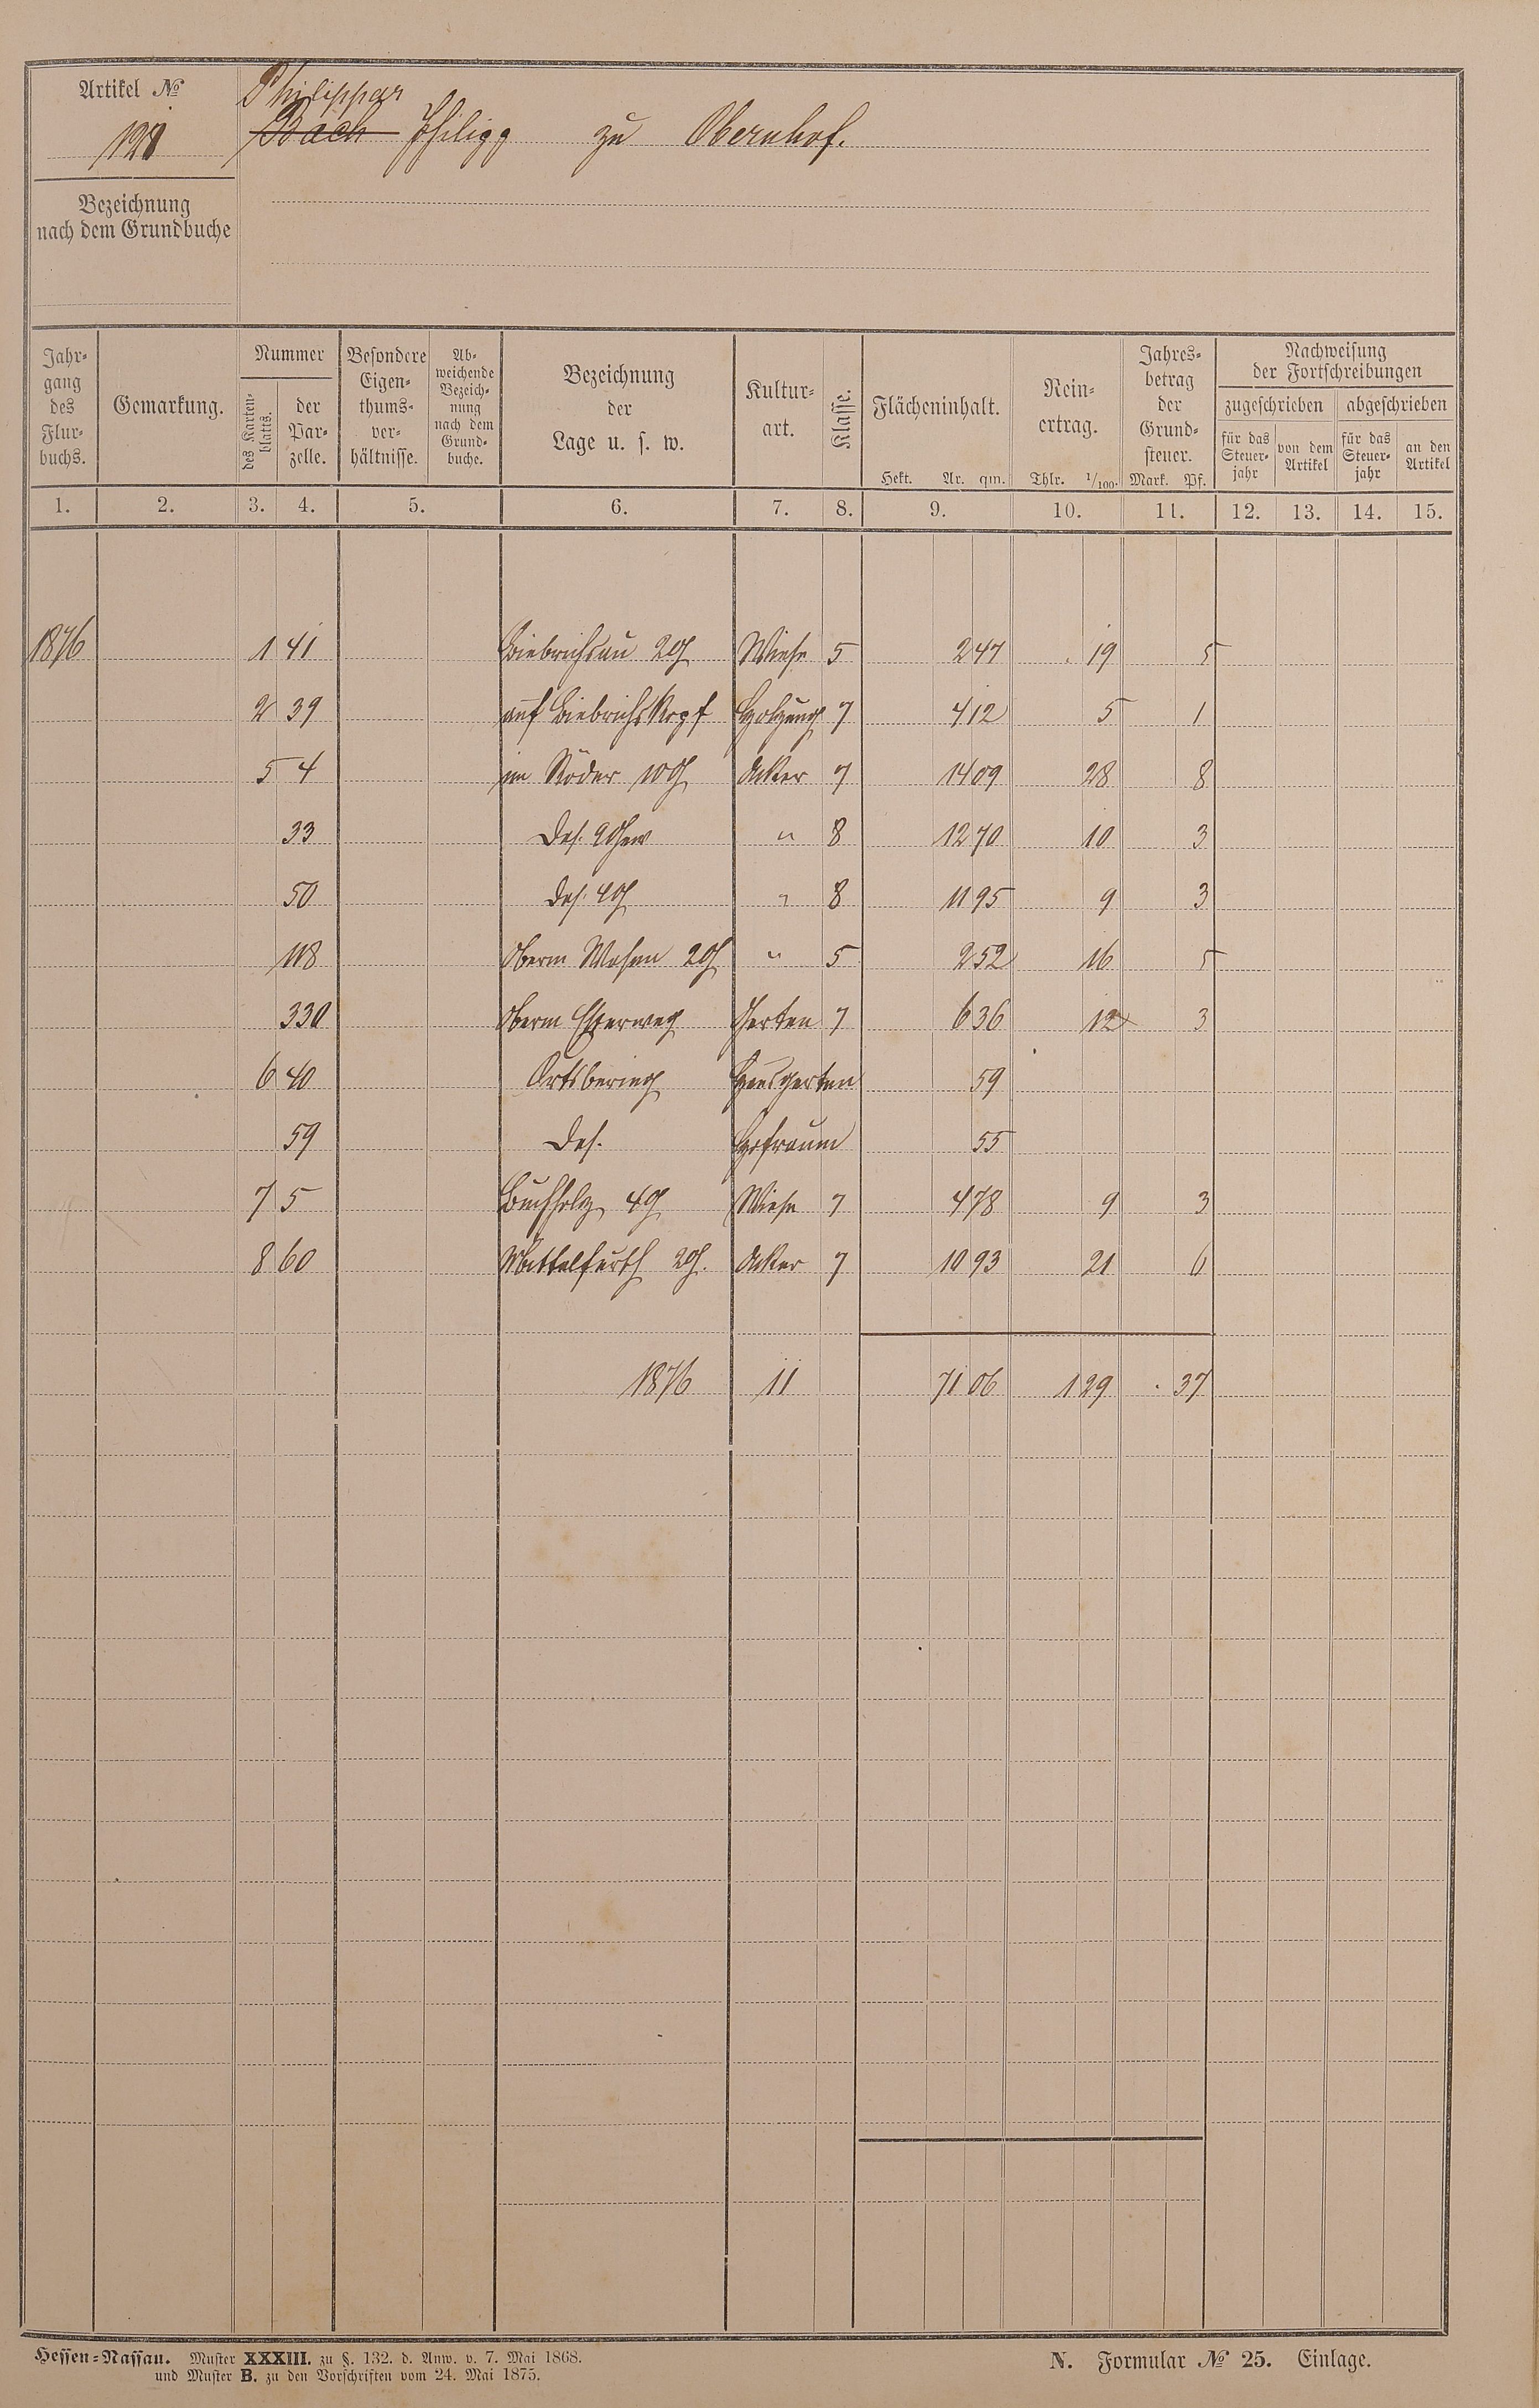 Artikel №
128
Philippar
Bach Philipp zu Obernhof.
Bezeichnung
nach dem Grundbuche
Jahrgang des Flurbuchs. Gemarkung. Nummer des Kartenblatts. der Parzelle. Besondere Eigenthumsverhältnisse. Abweichende Bezeichnung nach dem Grundbuche. Bezeichnung der Lage u. s. w. Kulturart. Klasse. Flächeninhalt. Hekt. Ar. qm. Reinertrag. Thlr. 1/100. Jahresbetrag der Grundsteuer. Mark. Pf. Nachweisung der Fortschreibungen zugeschrieben für das Steuerjahr von dem Artikel abgeschrieben für das Steuerjahr an den Artikel
1. 2. 3. 4. 5. 6. 7. 8. 9. 10. 11. 12. 13. 14. 15.
1876 1 41 Biebrichsau 2 Wiese 5 2 47 . 19 5
2 39 auf Biebrichskopf Holzung 7 4 12 5 1
5 4 im Röder 10 Acker 7 14 09 28 8
33 Das. " 8 12 70 10 3
50 das. 4 " 8 11 95 9 3
118 Oberm Wasen 2 " 5 2 52 16 5
330 Oberm Garten 7 6 36 12 3
6 40 Ortsbering Hausgarten 59
59 Das. Hofraum 55
7 5 Buchholz 4 Wiese 7 4 78 9 3
8 60 Mittelfurth 2 Acker 7 10 93 21 6
1876 11 71 06 1 29 . 37
Hessen-Nassau. Muster XXXIII. zu §. 132. d. Anw. v. 7. Mai 1868.
und Muster B. zu den Vorschriften vom 24. Mai 1875.
N. Formular № 25. Einlage.